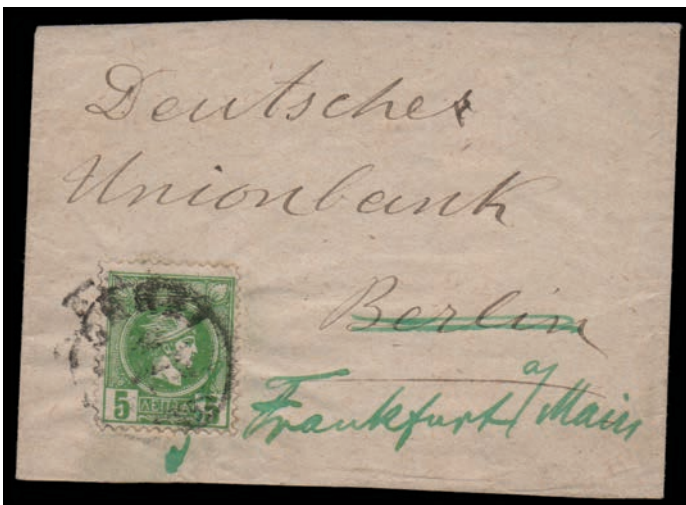 Deutsche
Unionbank
Berlin
Frankfurt a/Main
5 ΛΕΠΤΑ 5